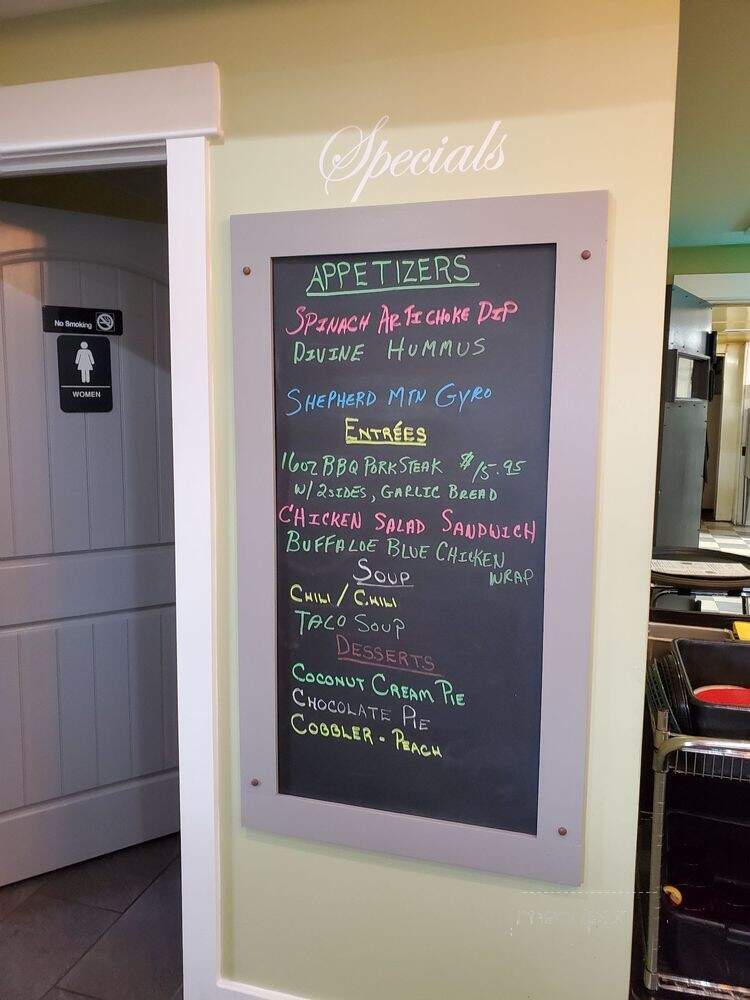 Specials
APPETIZERS
SPINACH ARTICHOKE DIP
DIVINE HUMMUS
SHEPHERD MTN GYRO
ENTRÉES
16oz BBQ PORK STEAK $15.95
W/ 2 SIDES, GARLIC BREAD
CHICKEN SALAD SANDWICH
BUFFALOE BLUE CHICKEN
WRAP
SOUP
CHILI / CHILI
TACO SOUP
DESSERTS
COCONUT CREAM PIE
CHOCOLATE PIE
COBBLER - PEACH
No Smoking
WOMEN